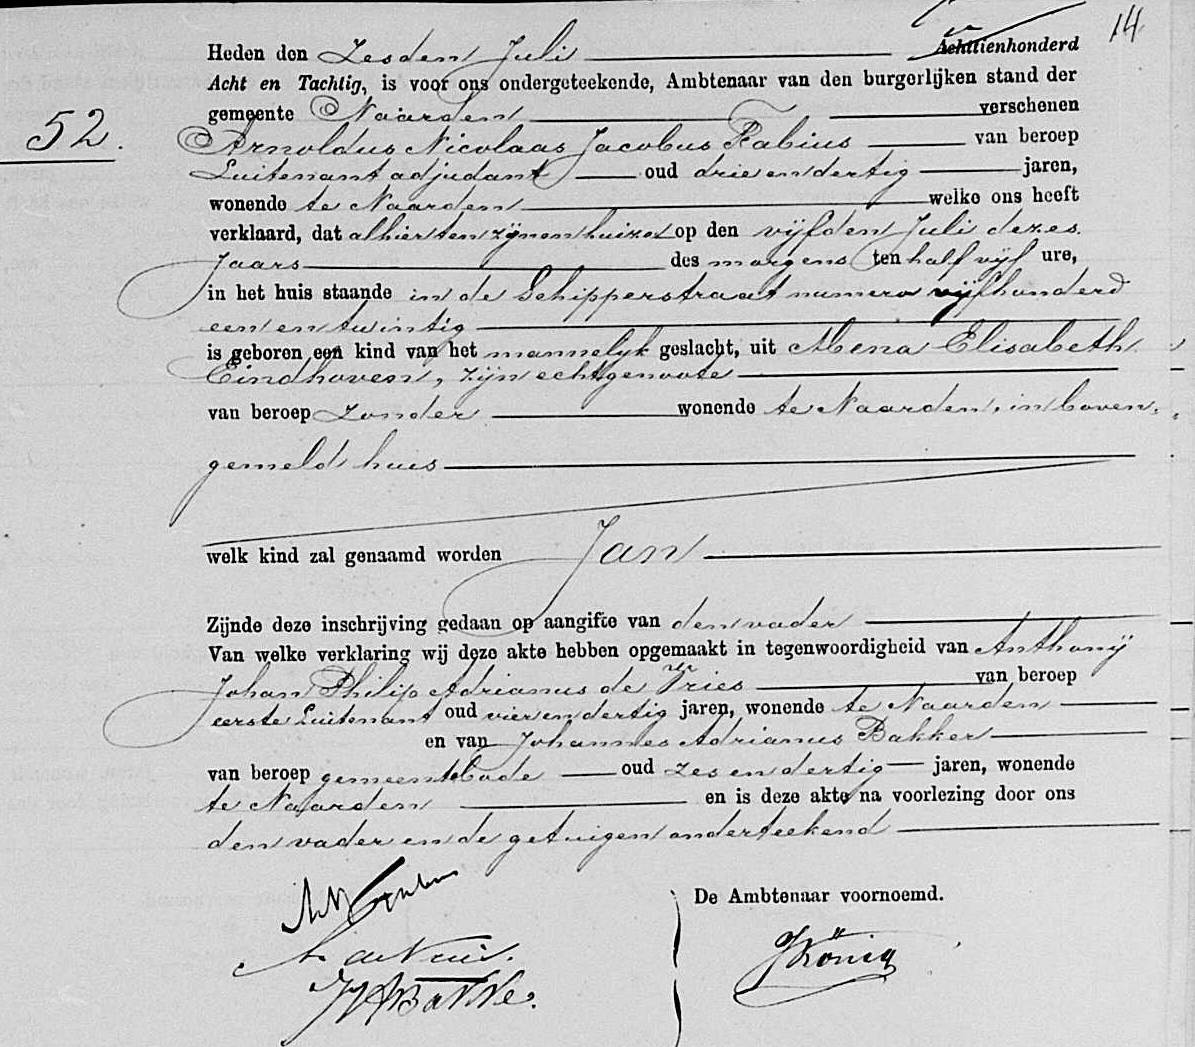 14
Heden den Zesden Juli Achttienhonderd
Acht en Tachtig, is voor ons ondergeteekende, Ambtenaar van den burgerlijken stand der
gemeente Naarden verschenen
52.
Arnoldus Nicolaas Jacobus Fabius van beroep
Luitenant adjudant oud drie en dertig jaren,
wonende te Naarden welke ons heeft
verklaard, dat alhier ten zijnen huize op den vijfden Juli dezes
Jaars des morgens ten half vijf ure,
in het huis staande in de Schipperstraat numero vijfhonderd
een en twintig
is geboren een kind van het mannelijk geslacht, uit Abena Elisabeth
Eindhoven, zijn echtgenoote
van beroep zonder wonende te Naarden, in boven-
gemeld huis
welk kind zal genaamd worden Jan
Zijnde deze inschrijving gedaan op aangifte van den vader
Van welke verklaring wij deze akte hebben opgemaakt in tegenwoordigheid van Anthonij
Johan Philip Adrianus de Vries van beroep
eerste Luitenant oud vier en dertig jaren, wonende te Naarden
en van Johannes Adrianus Bakker
van beroep gemeentebode oud zes en dertig jaren, wonende
te Naarden en is deze akte na voorlezing door ons
den vader en de getuigen onderteekend
De Ambtenaar voornoemd.
A N J Fabius
A. de Vries.
J A Bakker.
J König